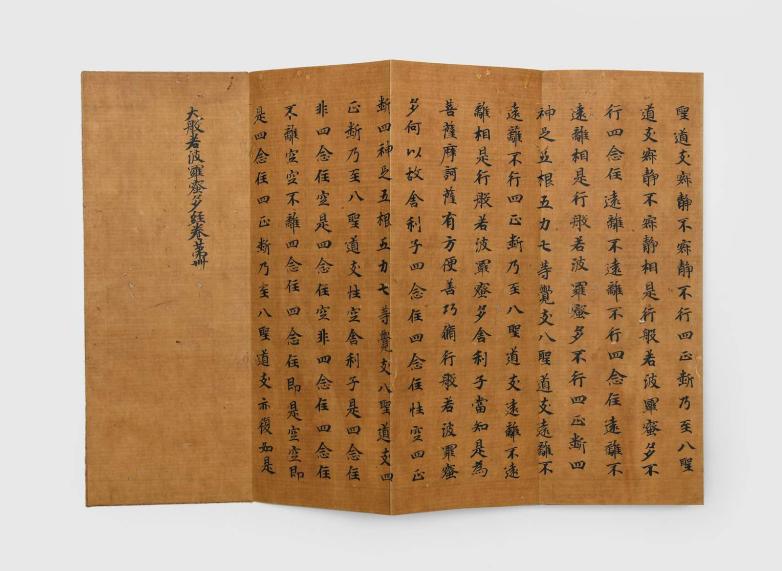 聖道支寂静不寂静不行四正斷乃至八聖
道支寂静不寂静相是行般若波羅蜜多不
行四念住遠離不遠離不行四念住遠離不
遠離相是行般若波羅蜜多不行四正斷四
神足五根五力七等覺支八聖道支遠離不
遠離不行四正斷乃至八聖道支遠離不遠
離相是行般若波羅蜜多舍利子當知是為
菩薩摩訶薩有方便善巧脩行般若波羅蜜
多何以故舍利子四念住四念住性空四正
斷四神足五根五力七等覺支八聖道支四
正斷乃至八聖道支性空舍利子是四念住
非四念住空是四念住空非四念住四念住
不離空空不離四念住四念住即是空空即
是四念住四正斷乃至八聖道支亦復如是
大般若波羅蜜多經卷第